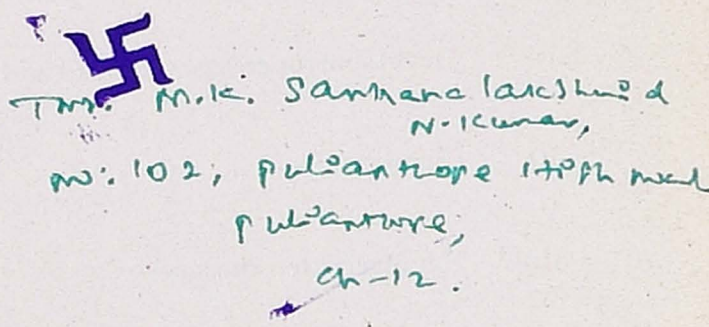 Tmr. M.K. Sankana lakshmi &
N. Kumar,
no: 102, pulianthope High road
pulianthope,
ch-12.